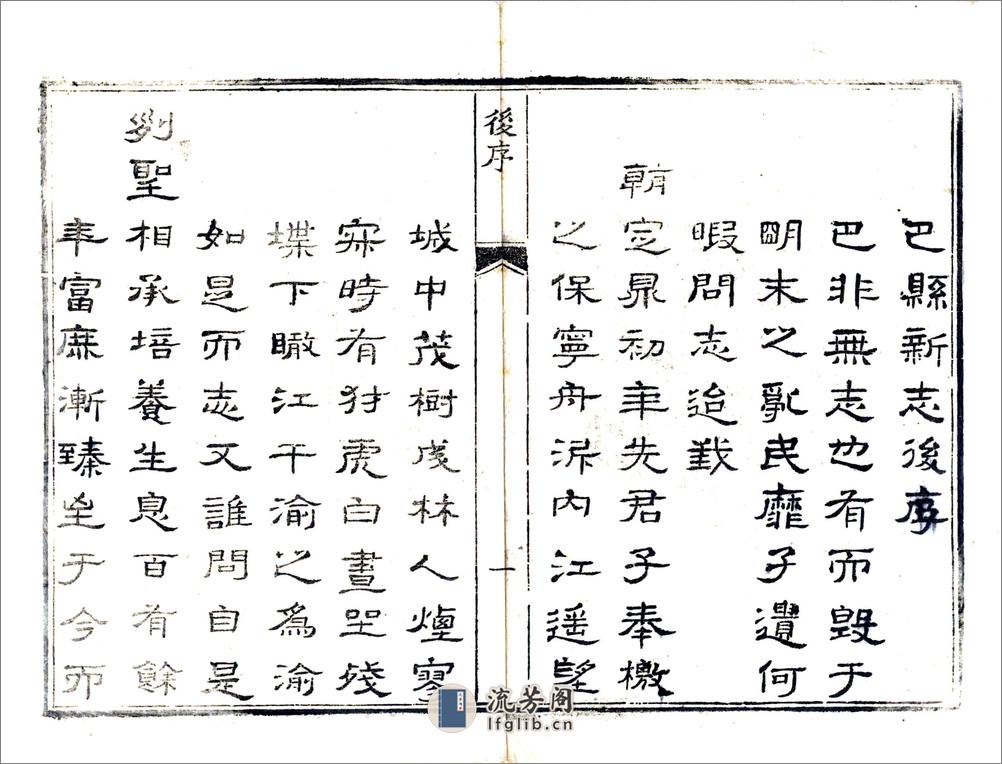 巴縣新志後序
巴非無志也有而毀于
明末之亂民靡孑遺何
暇問志迨我
朝定鼎初年先君子奉檄
之保寧舟泝內江遥望
後序
一
城中茂樹成林人煙寥
寂時有豺虎白晝坐殘
堞下瞰江干渝之為渝
如是而志又誰問自是
列聖相承培養生息百有餘
年富庶漸臻至于今而
流芳阁
lfglib.cn